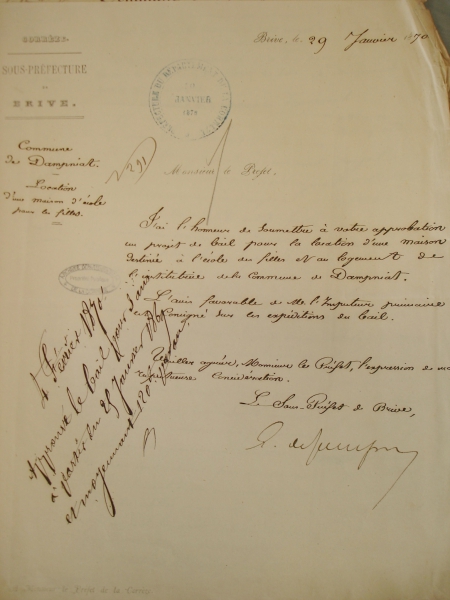 CORRÈZE.
SOUS-PRÉFECTURE
DE
BRIVE.
Brive, le 29 Janvier 1870
JANVIER
1870
Commune
de Dampniat.
Location
d'une maison d'école
pour les filles.
N 291
Monsieur le Préfet,
J'ai l'honneur de soumettre à votre approbation
un projet de bail pour la location d'une maison
destinée à l'école des filles et au logement de
l'institutrice de la Commune de Dampniat.
L'avis favorable de M. l'Inspecteur primaire
est consigné sur les expéditions du bail.
Veuillez agréer, Monsieur le Préfet, l'expression de ma
respectueuse considération.
Le Sous-Préfet de Brive,
Février 1870
Approuvé le bail pour
à partir du 25 janvier
et moyennant 120